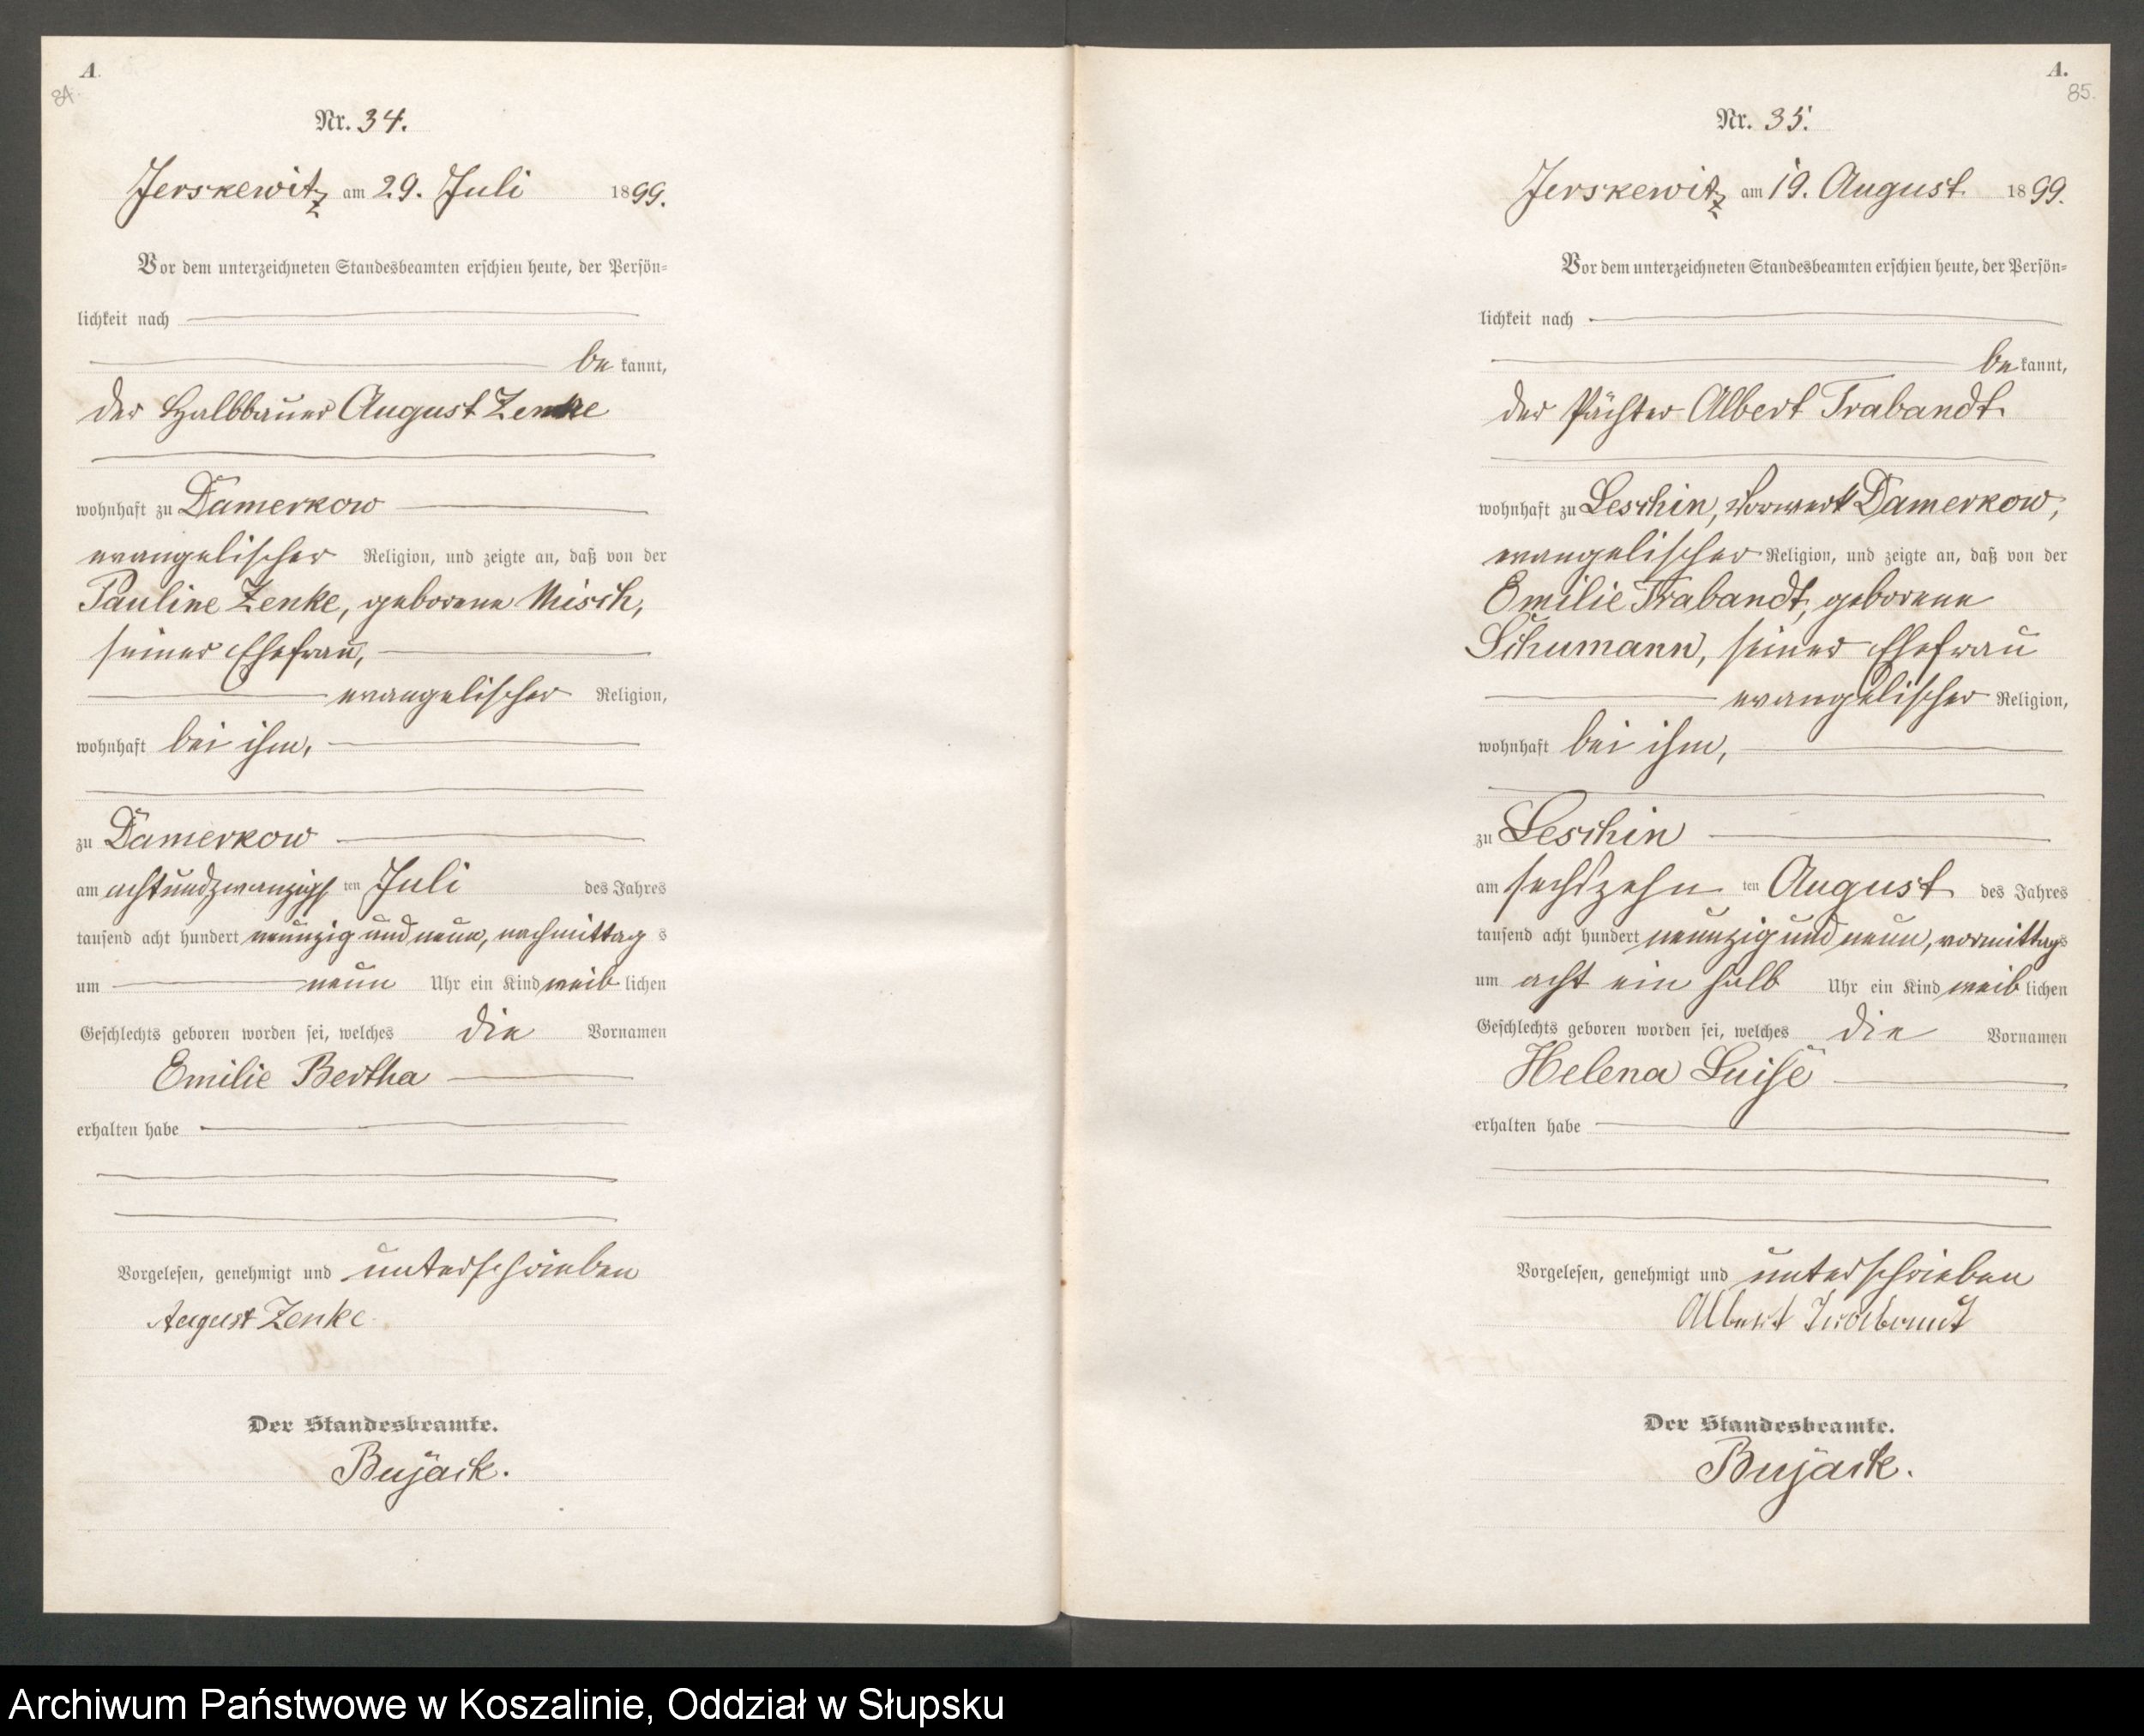 A.
34.
Nr. 34.
Jerskewitz am 29. Juli 1899.
Vor dem unterzeichneten Standesbeamten erschien heute, der Persön-
lichkeit nach
be kannt,
der Halbbauer August Zenke
wohnhaft zu Damerkow
evangelischer Religion, und zeigte an, daß von der
Pauline Zenke, geborene Misch,
seiner Ehefrau,
evangelischer Religion,
wohnhaft bei ihm,
zu Damerkow
am achtundzwanzigs ten Juli des Jahres
tausend acht hundert neunzig und neun, nachmittag s
um neun Uhr ein Kind weib lichen
Geschlechts geboren worden sei, welches die Vornamen
Emilie Bertha
erhalten habe
Vorgelesen, genehmigt und unterschrieben
August Zenke
Der Standesbeamte.
Bujack.
A.
35.
Nr. 35.
Jerskewitz am 19. August 1899.
Vor dem unterzeichneten Standesbeamten erschien heute, der Persön-
lichkeit nach
be kannt,
der Pächter Albert Trabandt
wohnhaft zu Leschin, Vorwerk Damerkow,
evangelischer Religion, und zeigte an, daß von der
Emilie Trabandt, geborene
Schumann, seiner Ehefrau
evangelischer Religion,
wohnhaft bei ihm,
zu Leschin
am sechszehn ten August des Jahres
tausend acht hundert neunzig und neun, vormittags
um acht ein halb Uhr ein Kind weib lichen
Geschlechts geboren worden sei, welches die Vornamen
Helena Luise
erhalten habe
Vorgelesen, genehmigt und unterschrieben
Albert Trabandt
Der Standesbeamte.
Bujack.
Archiwum Państwowe w Koszalinie, Oddział w Słupsku